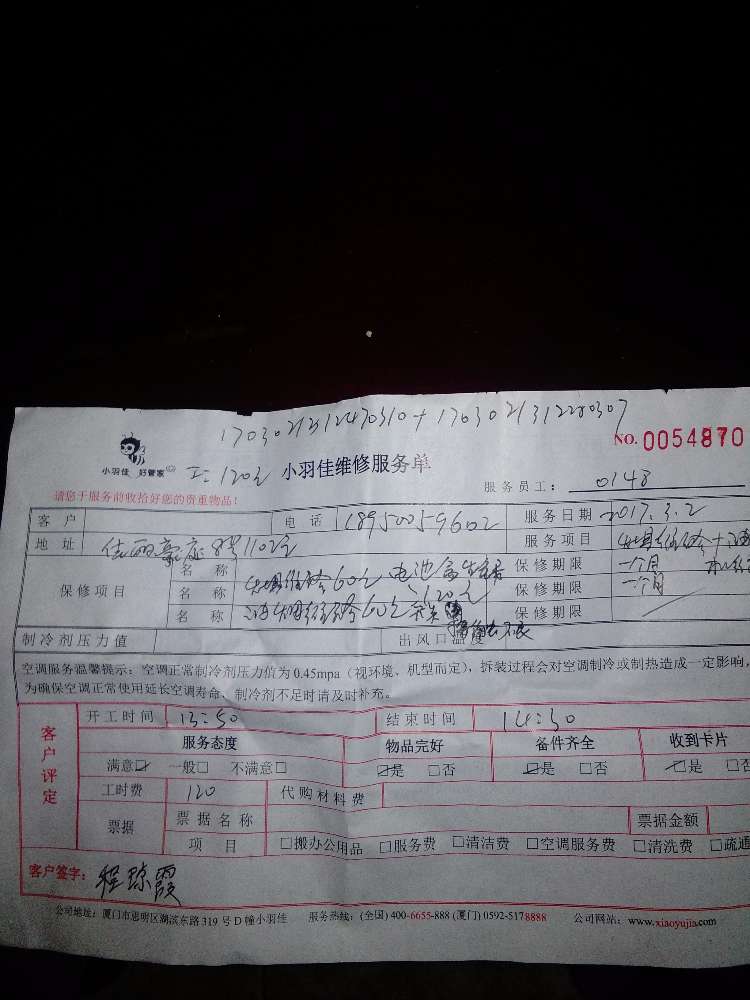 NO. 0054870
小羽佳 好管家 工:120元 小羽佳维修服务单
请您于服务前收拾好您的贵重物品!
服务员工: 0148
客户 电话 18950059602 服务日期 2017.3.2
地址 佳丽豪庭8号1102室 服务项目
保修项目
名称 60元 电池盒 保修期限 一个月
名称 60元 120元 保修期限 一个月
名称 保修期限
制冷剂压力值 出风口温度
空调服务温馨提示:空调正常制冷剂压力值为0.45mpa(视环境、机型而定),拆装过程会对空调制冷或制热造成一定影响,
为确保空调正常使用延长空调寿命、制冷剂不足时请及时补充。
客户评定
开工时间 13:50 结束时间 14:50
服务态度 物品完好 备件齐全 收到卡片
满意☑ 一般□ 不满意□ ☑是 □否 ☑是 □否 ☑是 □否
工时费 120 代购材料费
票据 票据名称 票据金额
项目 □搬办公用品 □服务费 □清洁费 □空调服务费 □清洗费 □疏通
客户签字: 程琼霞
公司地址:厦门市思明区湖滨东路319号D幢小羽佳 服务热线:(全国)400-6655-888 (厦门)0592-5178888 公司网站:www.xiaoyujia.com